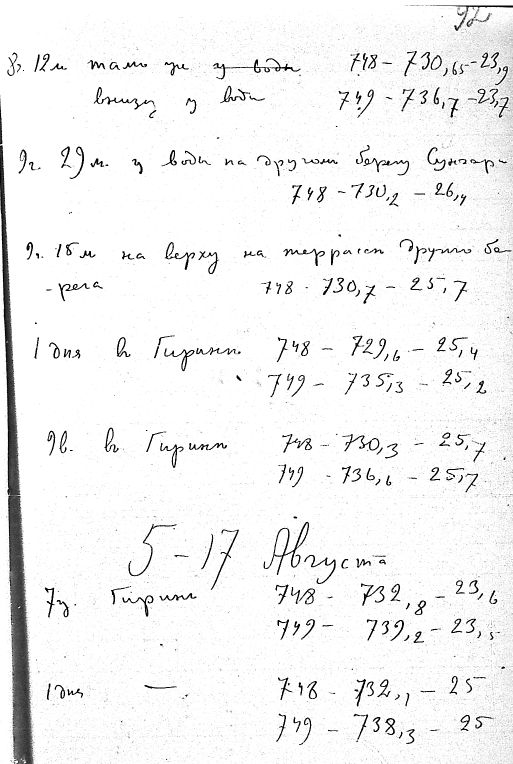 92
8ч. 12м тамъ же у воды 748 - 730,65 - 23,9
внизу у воды 749 - 736,7 - 23,7
9ч. 29м. у воды на другомъ берегу Сунгари
748 - 730,2 - 26,4
9ч. 15м на верху на террассѣ другого бе-
-рега 748 - 730,7 - 25,7
1 дня въ Гиринѣ 748 - 729,6 - 25,4
749 - 735,3 - 25,2
9в. въ Гиринѣ 748 - 730,3 - 25,7
749 - 736,6 - 25,7
5-17 Августа
7у. Гиринъ 748 - 732,8 - 23,6
749 - 739,2 - 23,5
1 дня — 748 - 732,1 - 25
749 - 738,3 - 25